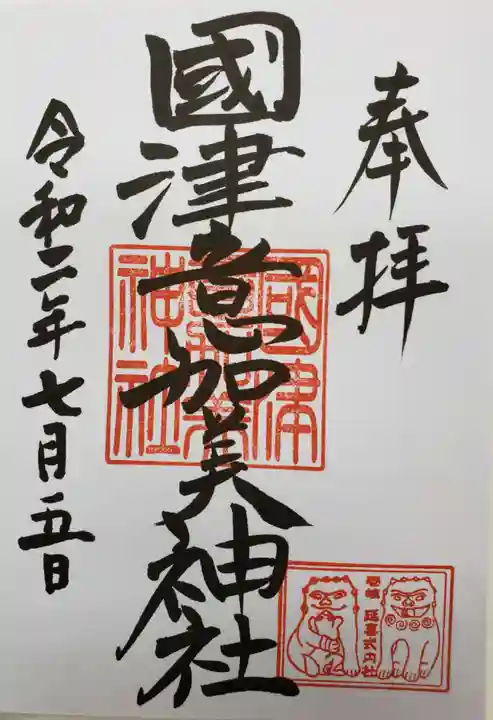 奉拝
國津意加美神社
令和二年七月五日
國津
意加美
神社
壱岐 延喜式内社